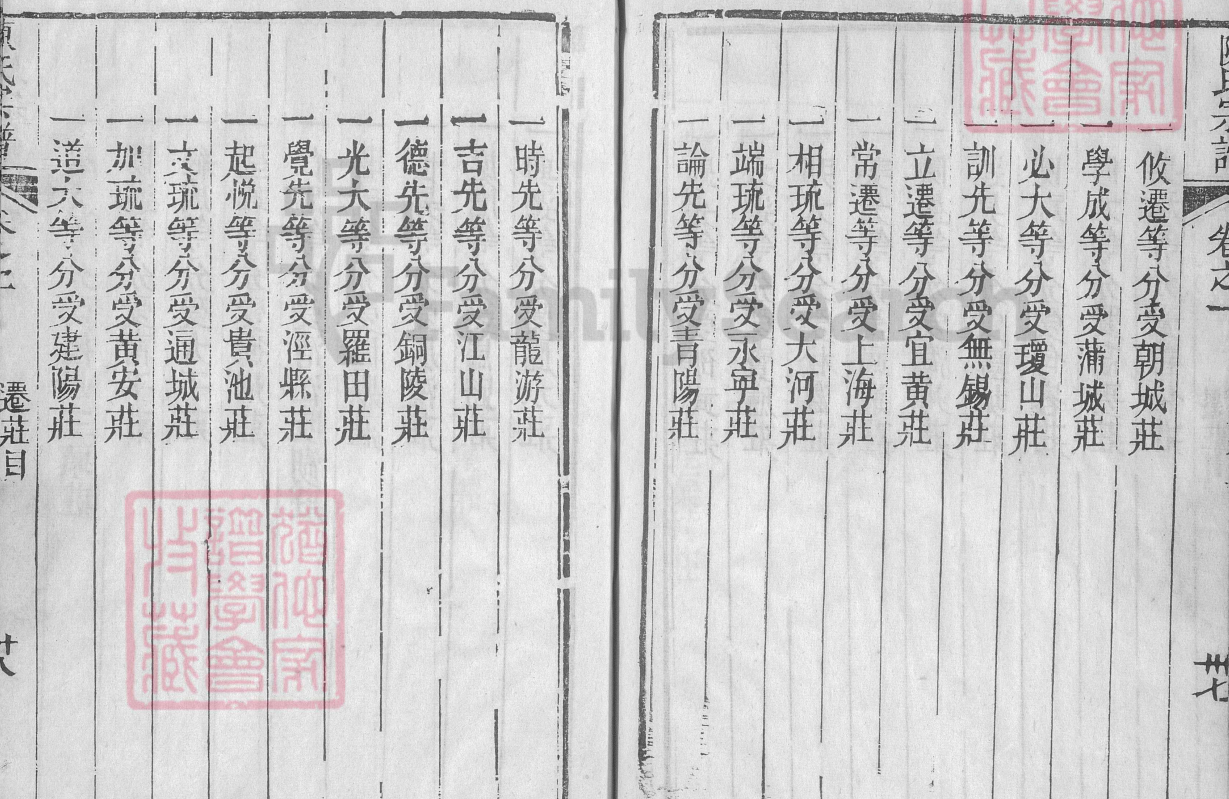 卷之一
一攸遷等分受朝城莊
一學成等分受蒲城莊
一必大等分受瓊山莊
一訓先等分受無錫莊
一立遷等分受宜黃莊
一常遷等分受上海莊
一相琉等分受大河莊
一端琉等分受永寧莊
一論先等分受青陽莊
一時先等分受龍游莊
一吉先等分受江山莊
一德先等分受銅陵莊
一光大等分受羅田莊
一覺先等分受涇縣莊
一起悅等分受貴池莊
一文琉等分受通城莊
一加琉等分受黃安莊
一道大等分受建陽莊
遷莊目
FamilySearch